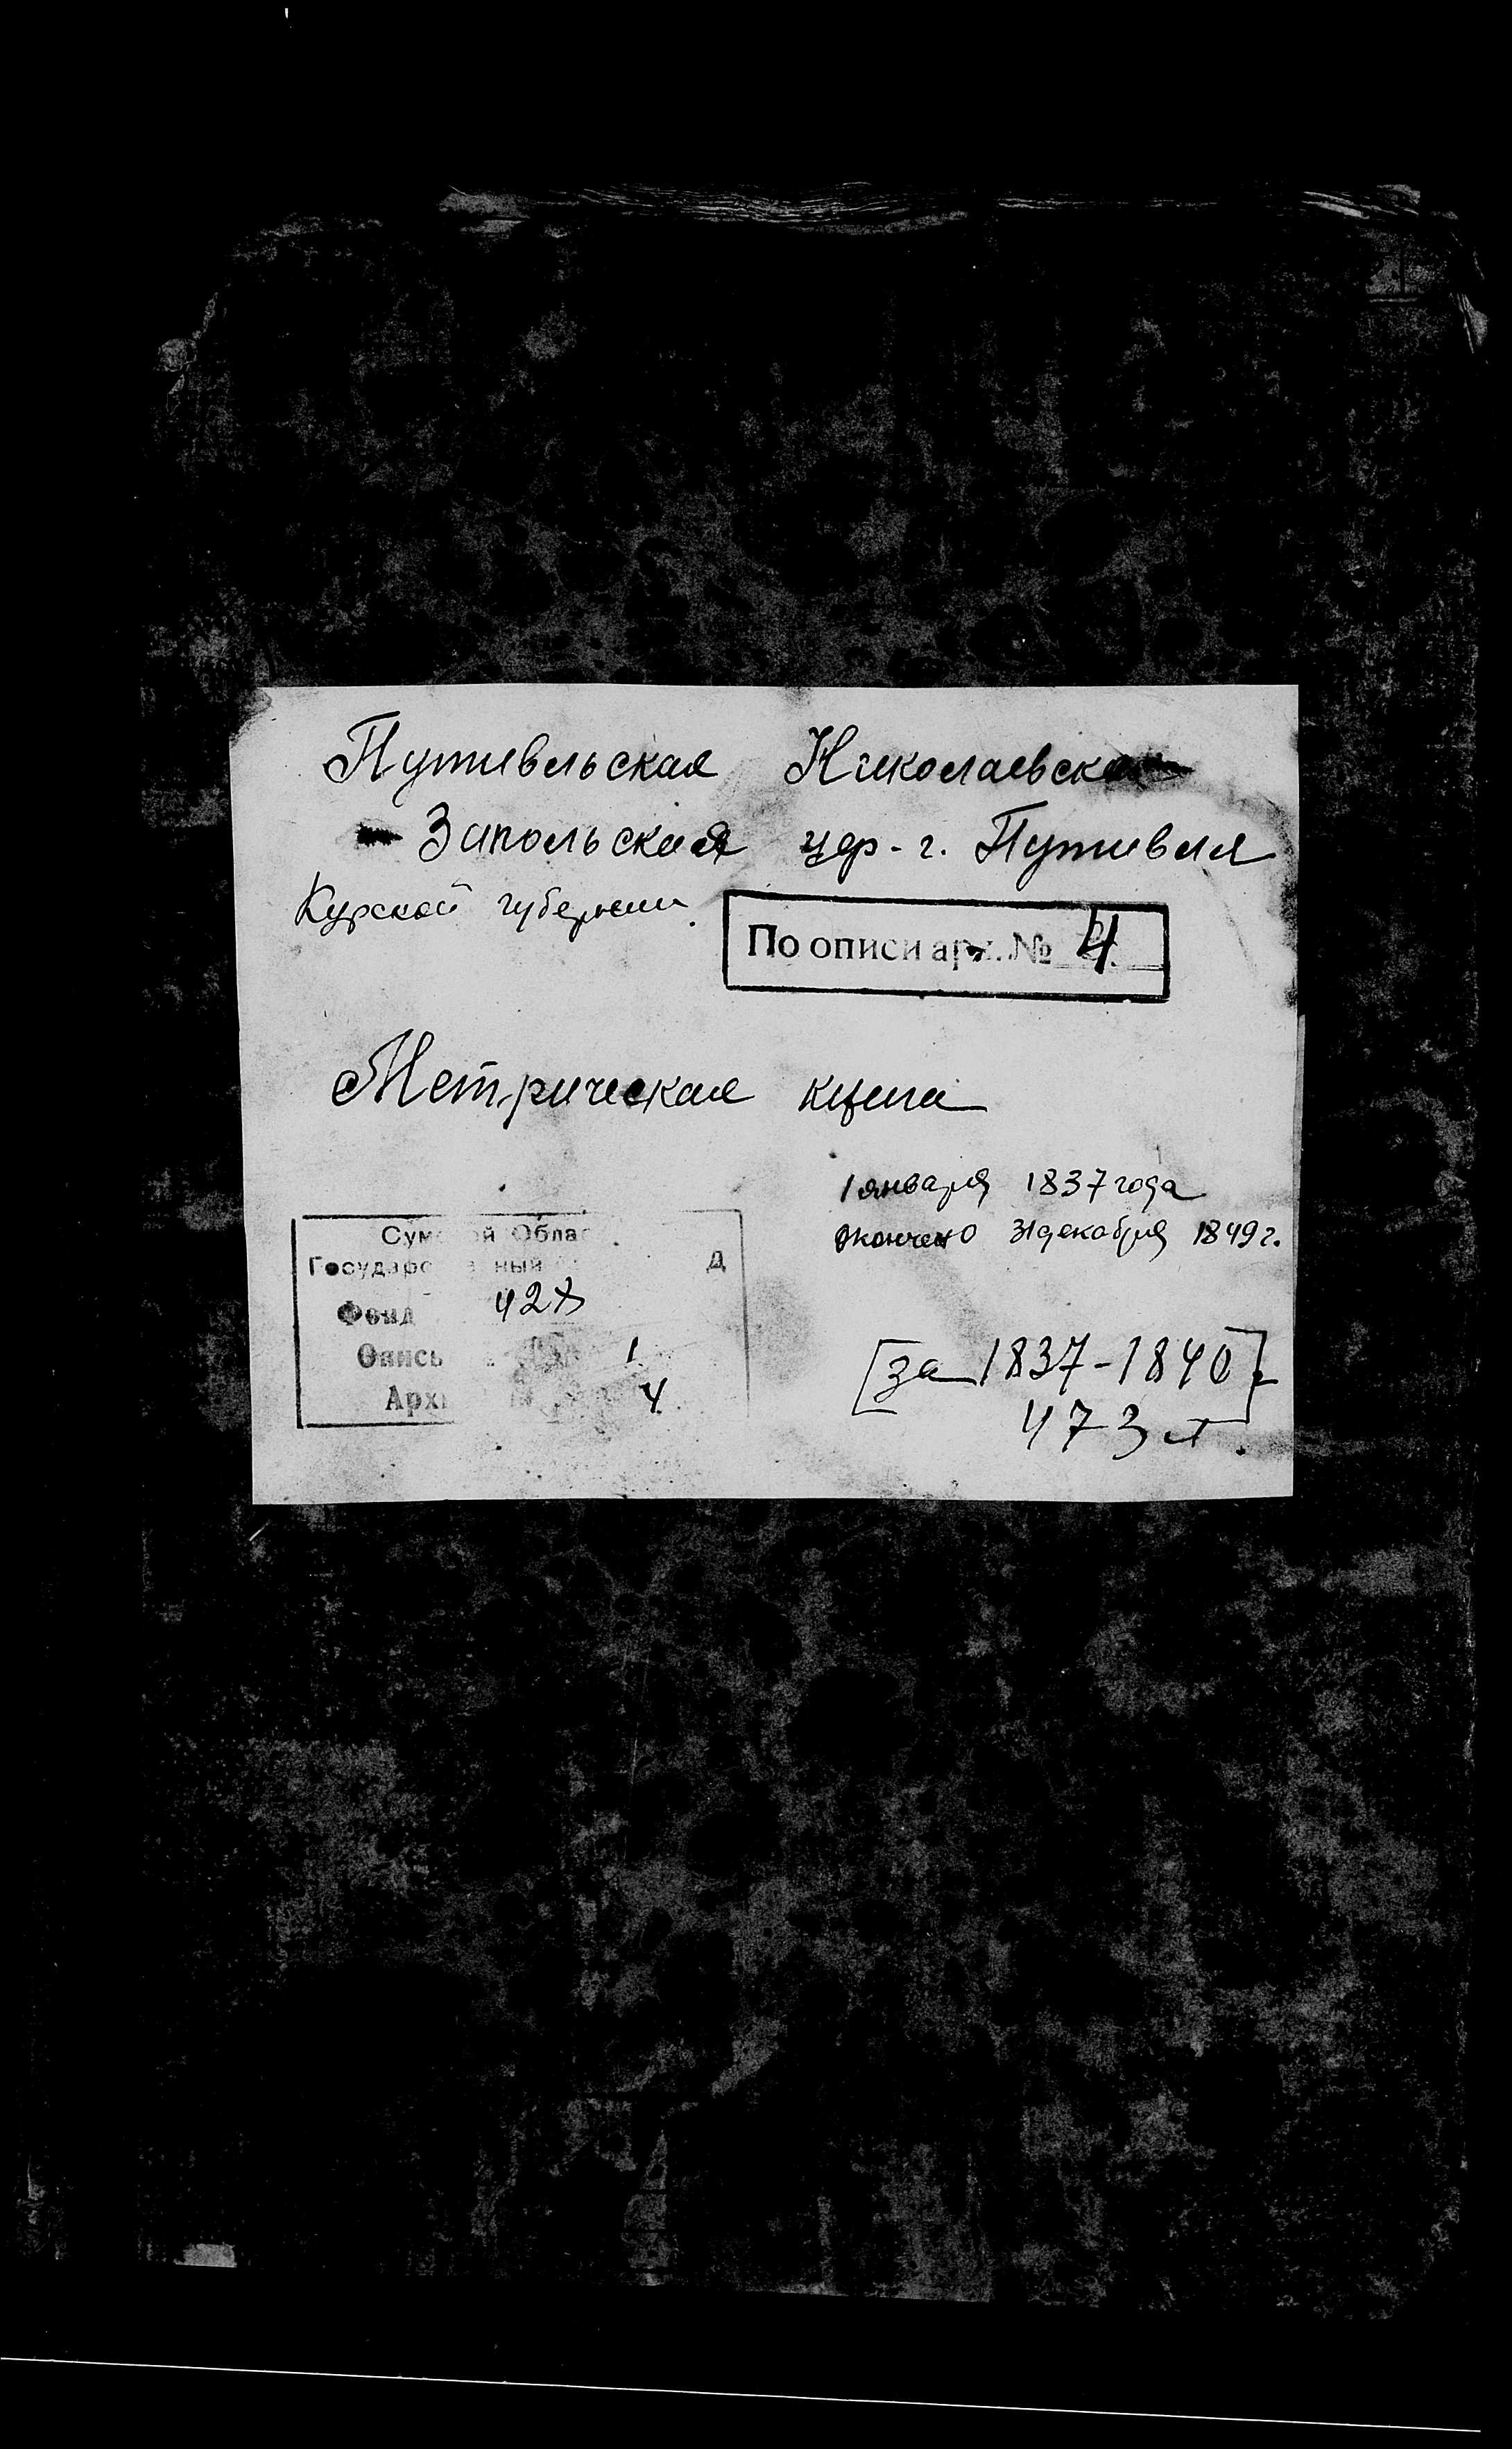 Путивльская Николаевска
Запольская цер-г. Путивля
Курской губернии.
По описи арх. № 4
Метрическая книга
1 января 1837 года
окончено 31 декабря 1849 г.
Сум й Облас
Государс ный Д
Фонд
Опись 1
Арх 4
[за 1837-1840]
473 л.